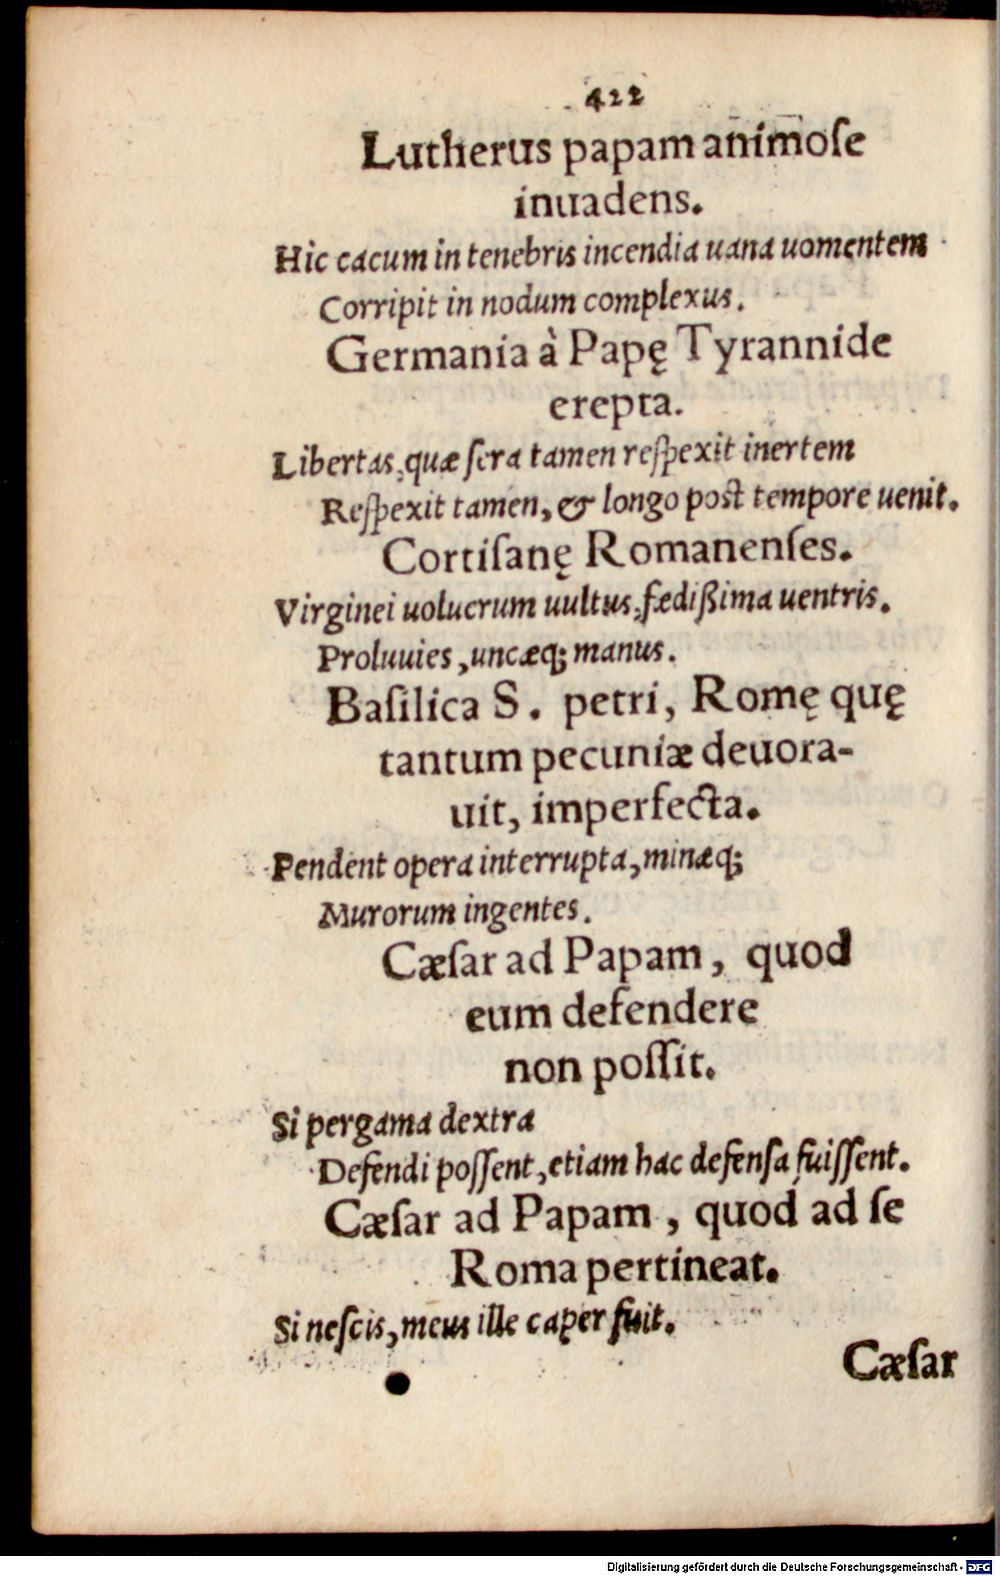 422
Lutherus papam animose
inuadens.
Hic cacum in tenebris incendia uana uomentem
Corripit in nodum complexus.
Germania à Papę Tyrannide
erepta.
Libertas, quæ sera tamen respexit inertem
Respexit tamen, & longo post tempore uenit.
Cortisanę Romanenses.
Virginei uolucrum uultus, fædißima uentris.
Proluuies, uncæq; manus.
Basilica S. petri, Romę quę
tantum pecuniæ deuora-
uit, imperfecta.
Pendent opera interrupta, minæq;
Murorum ingentes.
Cæsar ad Papam, quod
eum defendere
non possit.
Si pergama dextra
Defendi possent, etiam hac defensa fuissent.
Cæsar ad Papam, quod ad se
Roma pertineat.
Si nescis, meus ille caper fuit.
Cæsar
Digitalisierung gefördert durch die Deutsche Forschungsgemeinschaft - DFG